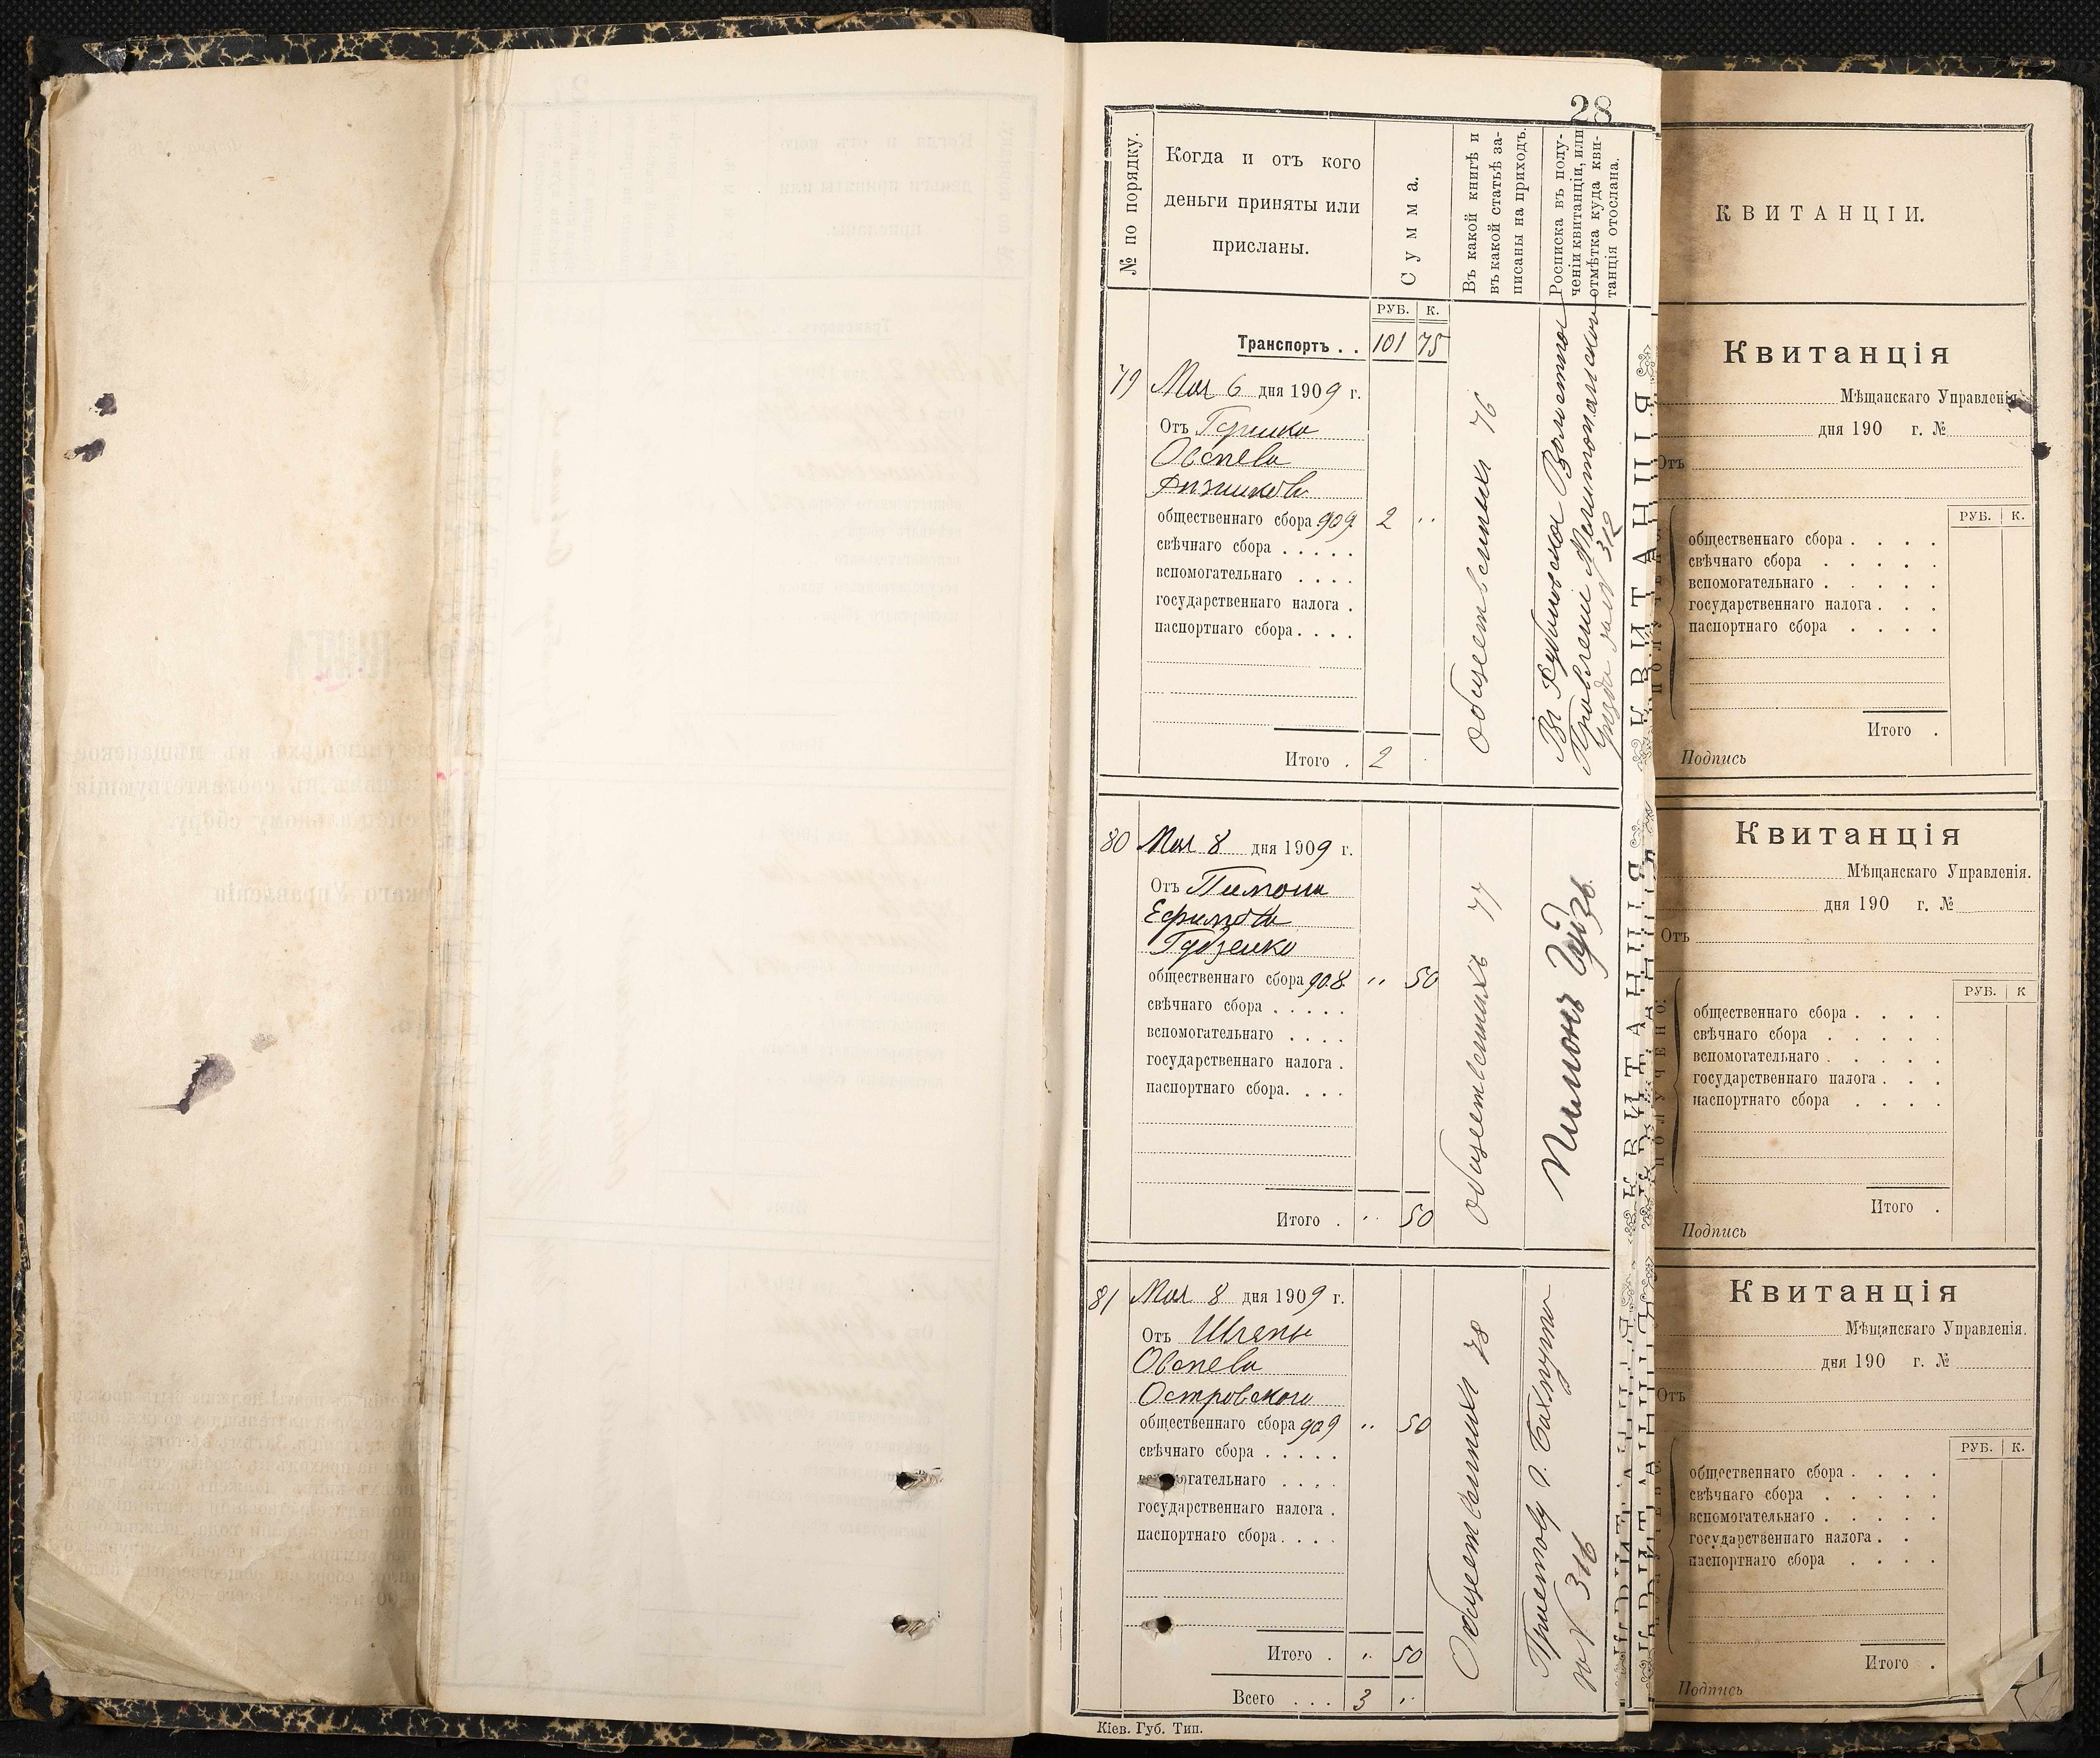 28
№ по порядку.
Когда и отъ кого
деньги приняты или
присланы.
Сумма.
Въ какой книгѣ и
въ какой статьѣ за-
писаны на приходъ.
Росписка въ полу-
ченіи квитанціи, или
отмѣтка куда кви-
танція отослана.
РУБ. К.
Транспортъ . . 101 75
79 Мая 6 дня 1909 г.
Отъ
Овсѣева
общественнаго сбора 909 2 "
свѣчнаго сбора . . . . .
вспомогательнаго . . . .
государственнаго налога .
паспортнаго сбора . . . .
Итого . 2
общественныхъ 76
Въ Волостное
Правленіе
уезда за № 312
80 Мая 8 дня 1909 г.
Отъ Пимона
Ефимова
общественнаго сбора 908 " 50
свѣчнаго сбора . . . . .
вспомогательнаго . . . .
государственнаго налога .
паспортнаго сбора. . . .
Итого . " 50
общественныхъ 77
Пимонъ
81 Мая 8 дня 1909 г.
Отъ
Овсѣева
Островского
общественнаго сбора 909 " 50
свѣчнаго сбора . . . . .
вспомогательнаго . . . .
государственнаго налога .
паспортнаго сбора . . . .
Итого . " 50
Всего . . . 3 "
Общественныхъ 78
Приставу г.
за № 316
Кіев. Губ. Тип.
КВИТАНЦІЯ
КВИТАНЦІЯ
КВИТАНЦІЯ
КВИТАНЦІИ.
Квитанція
Мѣщанскаго Управленія.
дня 190 г. №
Отъ
РУБ. К.
общественнаго сбора . . . .
свѣчнаго сбора . . . . .
вспомогательнаго . . . . .
государственнаго налога . . .
паспортнаго сбора . . . .
Итого .
Подпись
Квитанція
Мѣщанскаго Управленія.
дня 190 г. №
Отъ
ПОЛУЧЕНО:
РУБ. К
общественнаго сбора . . . .
свѣчнаго сбора . . . . .
вспомогательнаго . . . . .
государственнаго налога . . .
паспортнаго сбора . . . .
Итого .
Подпись
Квитанція
Мѣщанскаго Управленія.
дня 190 г. №
Отъ
РУБ. К.
общественнаго сбора . . . .
свѣчнаго сбора . . . . .
вспомогательнаго . . . . .
государственнаго налога . . .
паспортнаго сбора . . . .
Итого .
Подпись